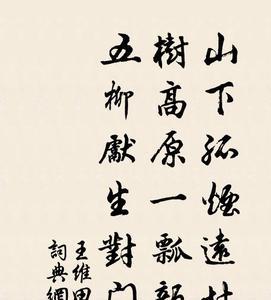 山下孤煙遠村
樹高原一瓢
五柳獻生對门
王維田
詞典網